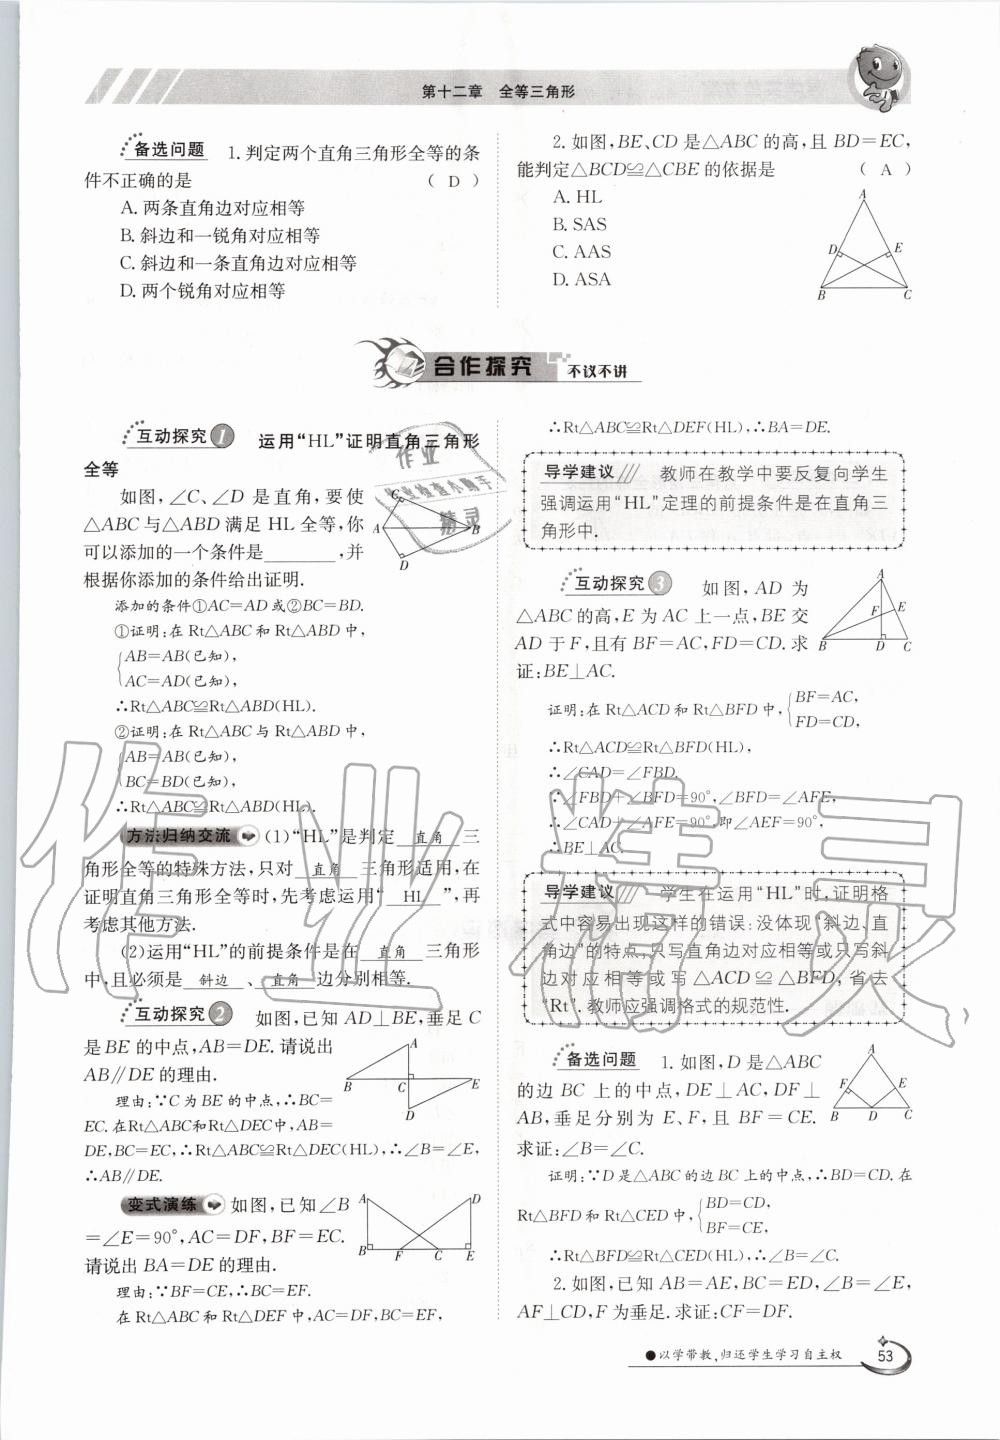 第十二章 全等三角形
备选问题 1.判定两个直角三角形全等的条
件不正确的是 ( D )
A.两条直角边对应相等
B.斜边和一锐角对应相等
C.斜边和一条直角边对应相等
D.两个锐角对应相等
2.如图,BE、CD是△ABC的高,且BD=EC,
能判定△BCD≌△CBE的依据是 ( A )
A. HL
B. SAS
C. AAS
D. ASA
A
D
E
B
C
合作探究 不议不讲
互动探究1 运用“HL”证明直角三角形
全等
如图,∠C、∠D是直角,要使
△ABC与△ABD满足HL全等,你
可以添加的一个条件是________,并
根据你添加的条件给出证明.
C
A
B
D
添加的条件①AC=AD或②BC=BD.
①证明:在Rt△ABC和Rt△ABD中,
AB=AB(已知),
AC=AD(已知),
∴Rt△ABC≌Rt△ABD(HL).
②证明:在Rt△ABC与Rt△ABD中,
AB=AB(已知),
BC=BD(已知),
∴Rt△ABC≌Rt△ABD(HL).
方法归纳交流 (1)“HL”是判定 直角 三
角形全等的特殊方法,只对 直角 三角形适用,在
证明直角三角形全等时,先考虑运用“ HL ”,再
考虑其他方法.
(2)运用“HL”的前提条件是在 直角 三角形
中,且必须是 斜边 、 直角 边分别相等.
互动探究2 如图,已知AD⊥BE,垂足C
是BE的中点,AB=DE.请说出
AB∥DE的理由.
A
B
C
E
D
理由:∵C为BE的中点,∴BC=
EC.在Rt△ABC和Rt△DEC中,AB=
DE,BC=EC,∴Rt△ABC≌Rt△DEC(HL),∴∠B=∠E,
∴AB∥DE.
变式演练 如图,已知∠B
=∠E=90°,AC=DF,BF=EC.
请说出BA=DE的理由.
A
D
B
F
C
E
理由:∵BF=CE,∴BC=EF.
在Rt△ABC和Rt△DEF中,AC=DF,BC=EF,
∴Rt△ABC≌Rt△DEF(HL),∴BA=DE.
导学建议 教师在教学中要反复向学生
强调运用“HL”定理的前提条件是在直角三
角形中.
互动探究3 如图,AD为
△ABC的高,E为AC上一点,BE交
AD于F,且有BF=AC,FD=CD.求
证:BE⊥AC.
A
F
E
B
D
C
证明:在Rt△ACD和Rt△BFD中,
BF=AC,
FD=CD,
∴Rt△ACD≌Rt△BFD(HL),
∴∠CAD=∠FBD.
∵∠FBD+∠BFD=90°,∠BFD=∠AFE,
∴∠CAD+∠AFE=90°,即∠AEF=90°,
∴BE⊥AC.
导学建议 学生在运用“HL”时,证明格
式中容易出现这样的错误:没体现“斜边、直
角边”的特点,只写直角边对应相等或只写斜
边对应相等或写△ACD≌△BFD,省去
“Rt”.教师应强调格式的规范性.
备选问题 1.如图,D是△ABC
的边BC上的中点,DE⊥AC,DF⊥
AB,垂足分别为E、F,且BF=CE.
求证:∠B=∠C.
A
F
E
B
D
C
证明:∵D是△ABC的边BC上的中点,∴BD=CD.在
Rt△BFD和Rt△CED中,
BD=CD,
BF=CE,
∴Rt△BFD≌Rt△CED(HL),∴∠B=∠C.
2.如图,已知AB=AE,BC=ED,∠B=∠E,
AF⊥CD,F为垂足.求证:CF=DF.
●以学带教,归还学生学习自主权
53
作业
作业检查小助手
精灵
作业精灵